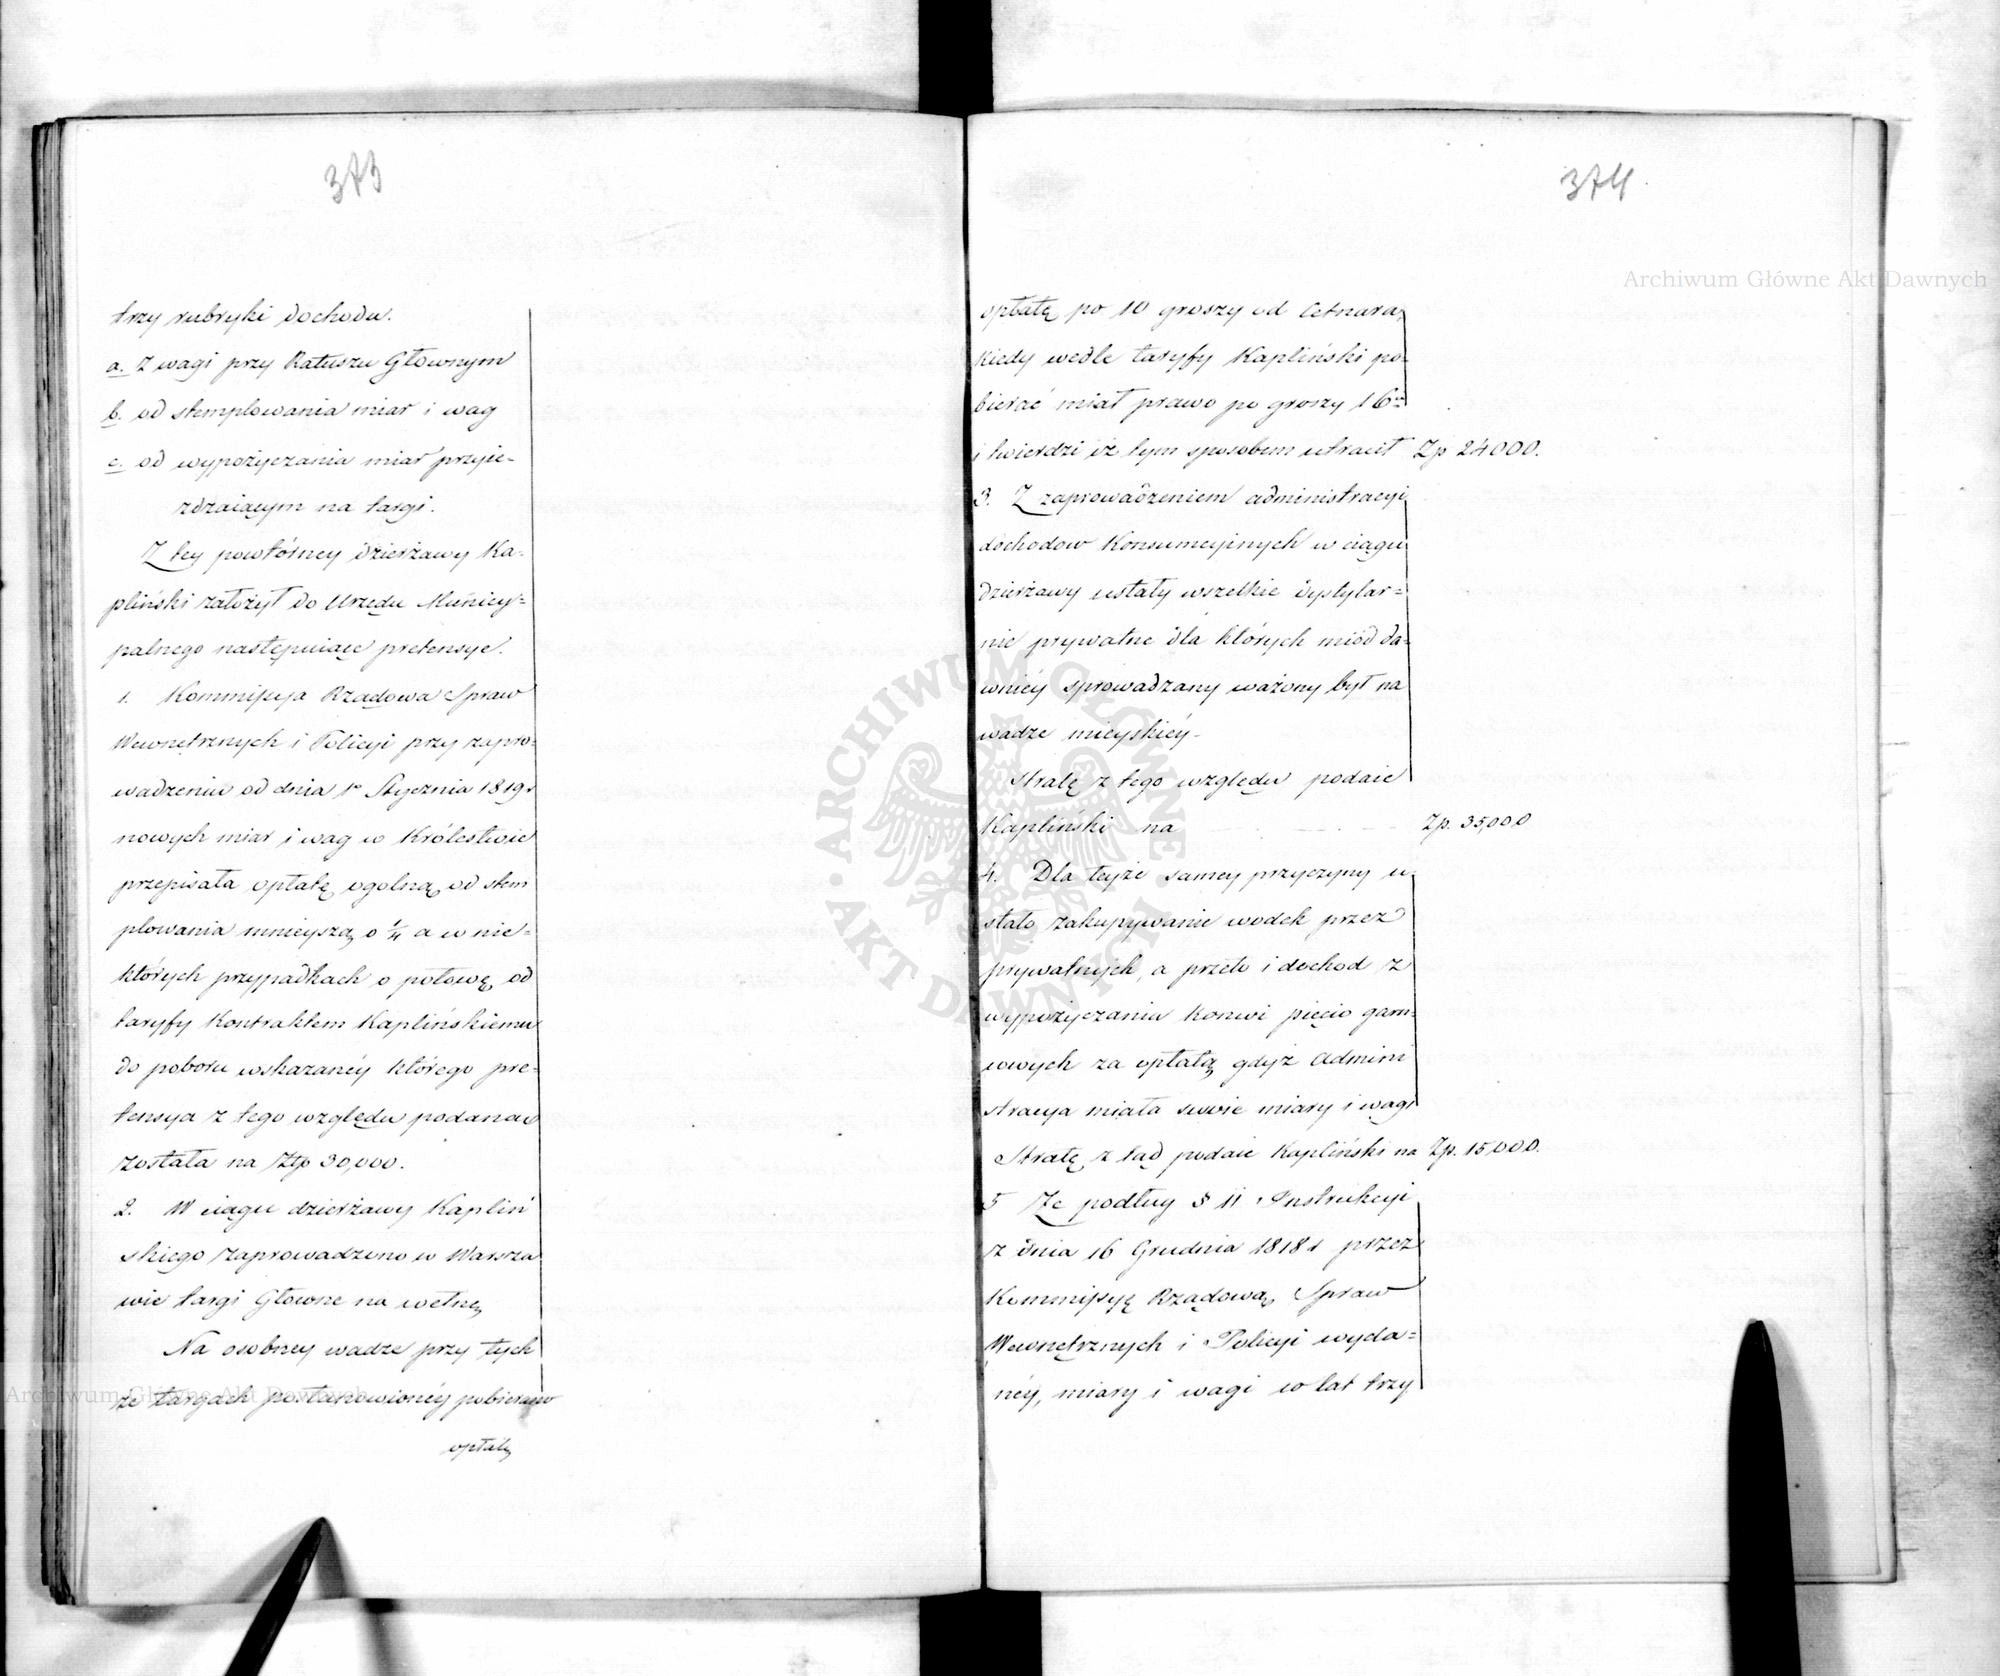 373
trzy rubryki dochodu.
a. Z wagi przy Ratuszu Głownym
b. od stemplowania miar i wag
c. od wypożyczania miar przyie-
zdzaiącym na targi.
Z tey powtórney dzierżawy Ka-
pliński założył do Urzędu Municy=
palnego następuiące pretensye.
1. Kommissya Rządowa Spraw
Wewnętrznych i Policyi przy zapro=
wadzeniu od dnia 1º Stycznia 1819 r
nowych miar i wag w Królestwie
przepisała opłatę ogolną od stem
plowania mnieyszą o 1/4 a w nie=
których przypadkach o połowę od
taryfy Kontraktem Kaplińskiemu
do poboru wskazanéy którego pre=
tensya z tego względu podana
została na Złp 30,000.
2. W ciągu dzierżawy Kapliń
skiego zaprowadzono w Warsza
wie targi Głowne na wełnę
Na osobney wadze przy tych
że targach postanowionéy pobierano
opłatę
374
opłatę po 10 groszy od Cetnara,
kiedy wedle taryfy Kapliński po-
bierać miał prawo po groszy 16
i twierdzi iż tym sposobem utracił Zp 24000.
3. Z zaprowadzeniem administracyi
dochodow Konsumcyinych w ciągu
dzierżawy ustały wszelkie dystylar=
nie prywatne dla których miód da=
wniéy sprowadzany ważony był na
wadze mieyskiéy.
Stratę z tego względu podaie
Kapliński na Zp. 35,000
4. Dla teyże samey przyczyny u-
stało zakupywanie wodek przez
prywatnych, a przeto i dochod z
wypożyczania konwi pięcio garn=
cowych za opłatą gdyż Admini
stracya miała swoie miary i wagi
Stratę z tąd podaie Kapliński na Zp. 15,000.
5 Ze podług § 11 Instrukcyi
z dnia 16 Grudnia 1818 r przez
Kommissyę Rządową Spraw
Wewnętrznych i Policyi wyda=
néy, miary i wagi co lat trzy
Archiwum Główne Akt Dawnych
Archiwum Główne Akt Dawnych
ARCHIWUM GŁÓWNE · AKT DAWNYCH ·